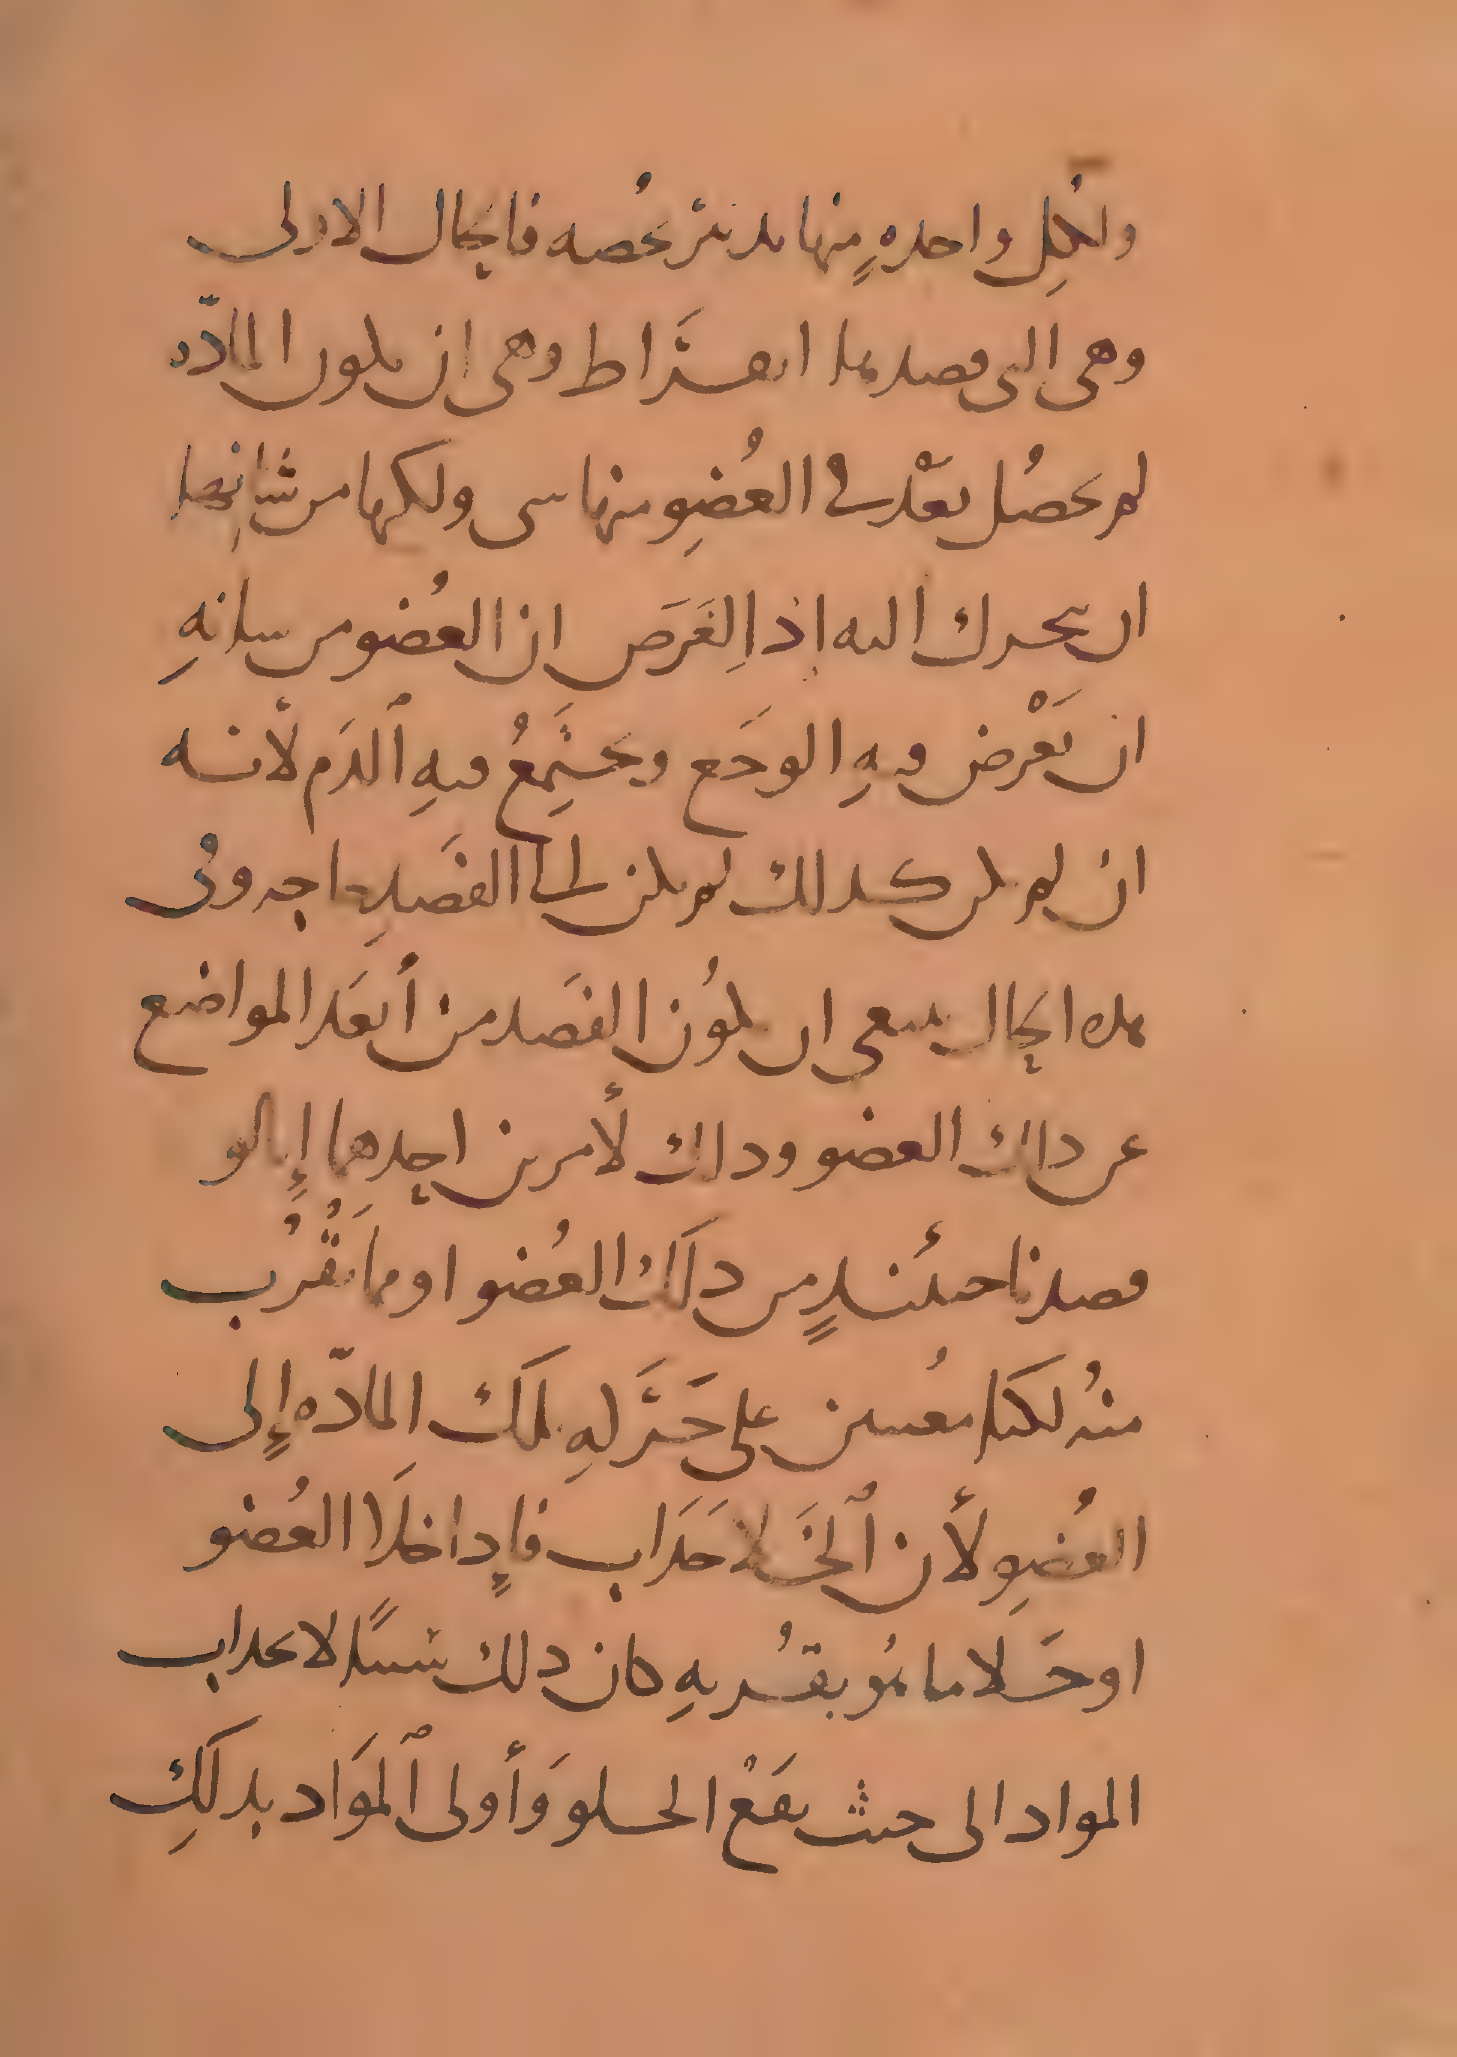 ولكل واحده منها تدبير يخصه فالحال الاولى
وهى التى قصد بها ابقراط وهى ان تكون المادّه
لم يحصل بعْد فى العُضوِ منها شى ولكنها من شانها
ان يتحرك اليه إذ الغَرَض ان العُضو من شانهِ
ان يَعْرض فيهِ الوجَع ويجتَمِعُ فيهِ ٱلدَم لأنه
ان لم يكن كذلك لم يكن الى الفَصدِ حاجه وفى
هذه الحال ينبغى ان يكوُن الفصَد من أبعَد المواضع
عن ذلك العضو وذلك لأمرين احدِهما إنا لو
فصدنا حينئذٍ من ذلَك العُضو او مما يَقْرُب
منهُ لكنا مُعينين على حَركَةِ تلكَ المادّه إِلى
العُضوِ لأن ٱلخَلا جَذَاب فإِذا خَلا العُضو
او خَلا ما هُو بقُربهِ كان ذلك سببًا لانجذاب
المواد الى حيث يقَعْ الخلو وَأولى ٱلموَاد بذلَكِ